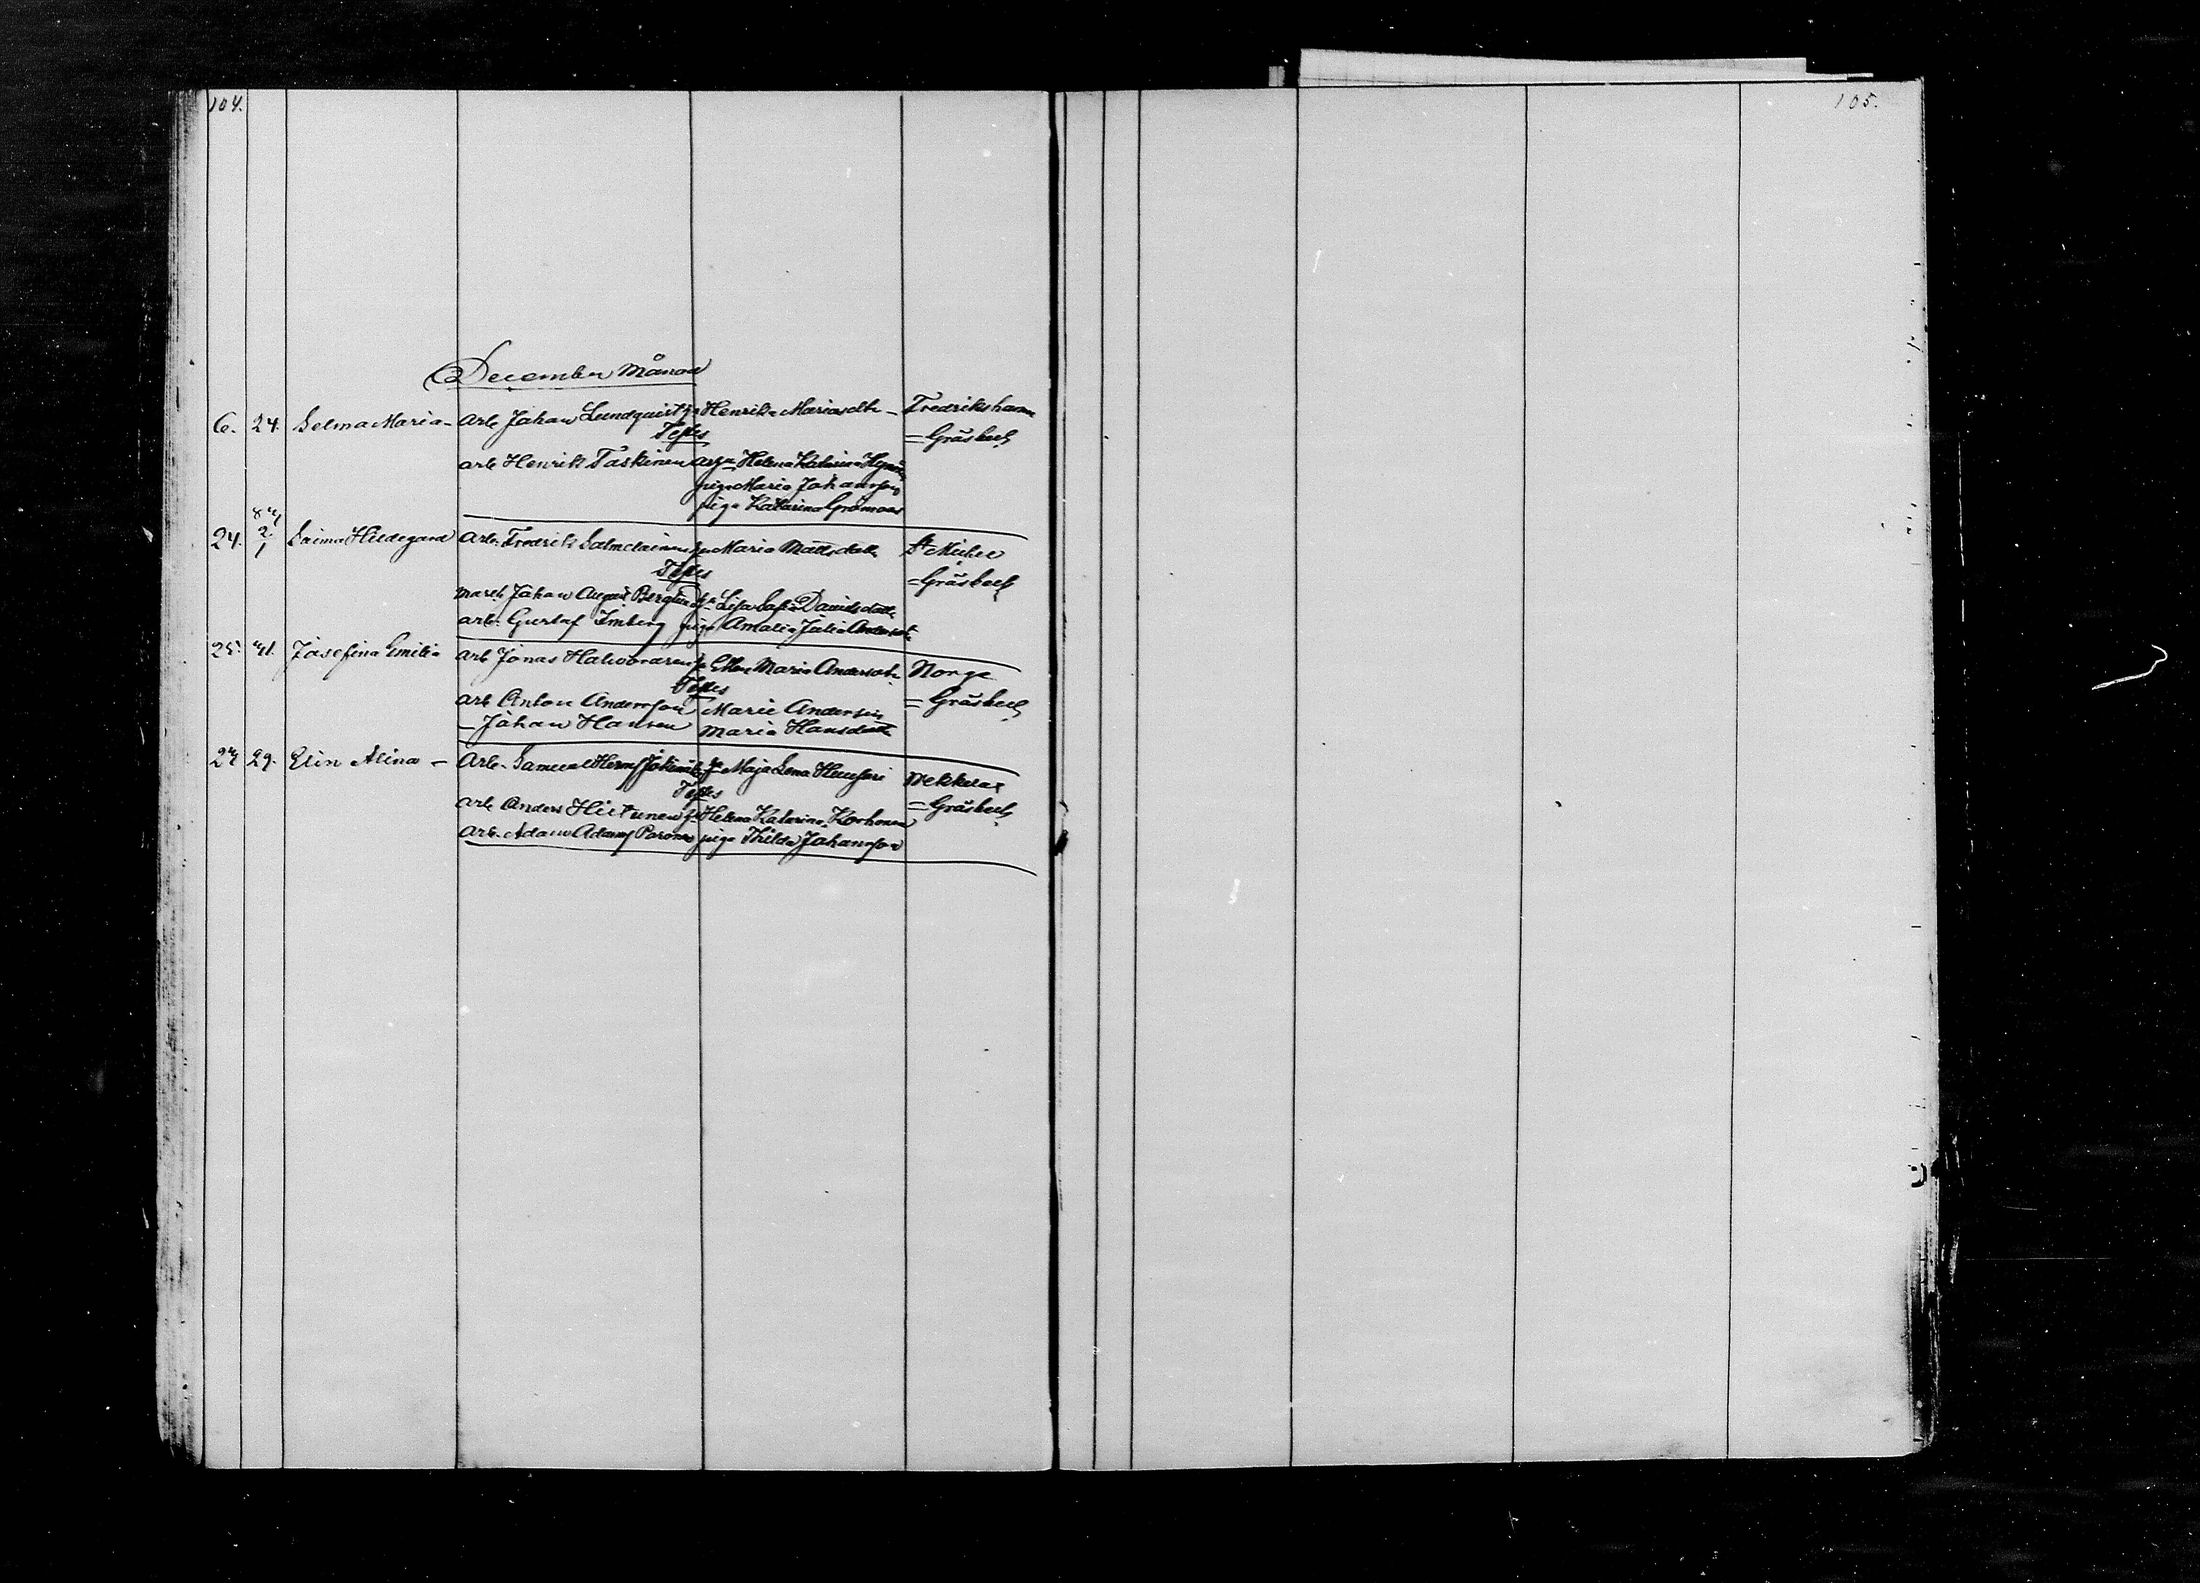 104.
105.
December Månad
6. 24. Selma Maria - Arb Johan Lundquist ja Henrika Mariasdtr - Fredrikshamn
Testes = Gräsbeck
arb Henrik Taskinen Helena Katarina
piga Maria Johansson
piga Katarina
24. 2/1 Saima Hildegard Arb. Fredrik Salmelainen Maria Mattsdotter St Michel
Testes = Gräsbeck
Johan August Berglund Lisa Sofia Davidsdotter
arb. Gustaf Imberg piga Amalia Julia
25. 31. Josefina Emilia arb Jonas Halvorsen Ellen Maria Andersdtr Norge
Testes = Gräsbeck
arb Anton Andersson Marie Andersin
- Johan Hansen Maria Hansdotter
27 29. Elin Alina - Arb. Samuel Maja Lena
Testes = Gräsbeck
arb Anders Hietunen Helena Katarina Korhonen
arb. Adam piga Thilda Johansson